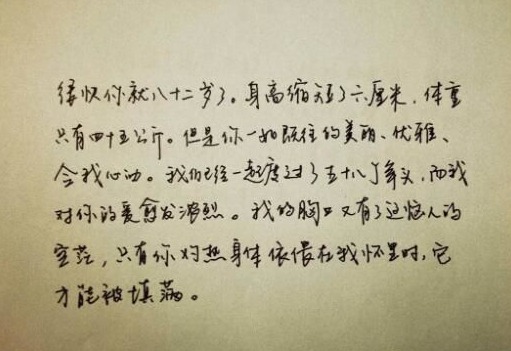 很快你就八十二岁了。身高缩短了六厘米，体重
只有四十五公斤。但是你一如既往的美丽、优雅、
令我心动。我们已经一起度过了五十八个年头，而我
对你的爱愈发浓烈。我的胸口又有了这恼人的
空茫，只有你灼热身体依偎在我怀里时，它
才能被填满。